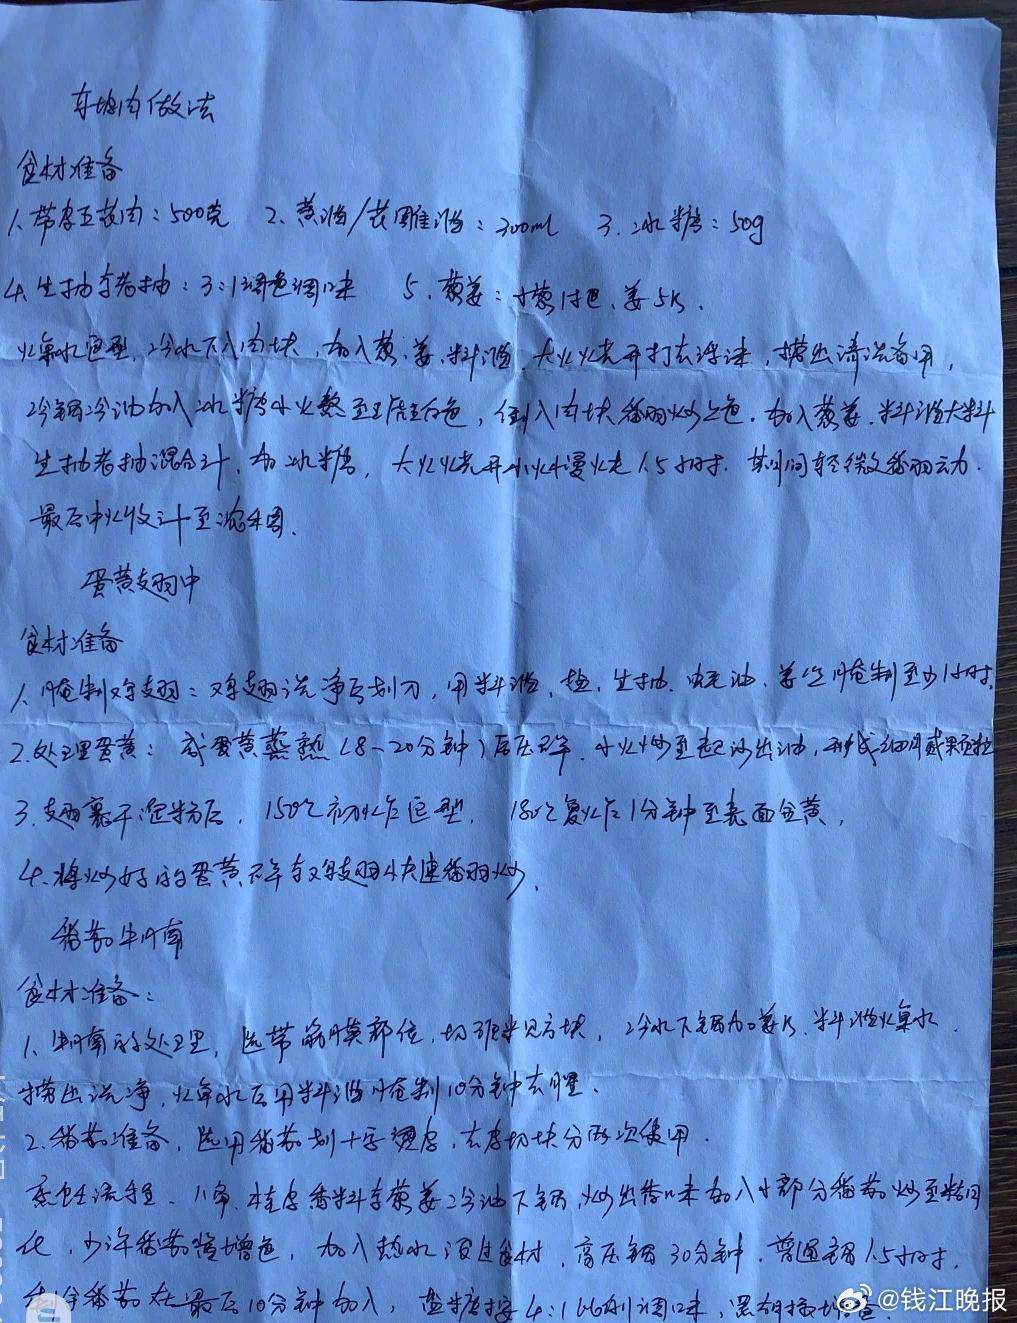 东坡肉做法
食材准备
1、带皮五花肉：500克 2、黄酒/花雕酒：300ml 3、冰糖：50g
4、生抽与老抽：3:1调色调味 5、葱姜：小葱1把、姜5片.
焯水定型，冷水下入肉块，加入葱、姜、料酒，大火烧开打去浮沫，捞出清洗备用，
冷锅冷油加入冰糖小火熬至琥珀色，倒入肉块翻炒上色，加入葱姜、料酒大料
生抽老抽混合汁，加冰糖，大火烧开小火慢火走1.5小时，期间轻微翻动.
最后中火收汁至浓稠.
蛋黄翅中
食材准备
1、腌制鸡翅：鸡翅洗净后划刀，用料酒、盐、生抽、蚝油、姜丝腌制至少1小时，
2、处理蛋黄：咸蛋黄蒸熟（8-20分钟）后压碎，小火炒至起沙出油，形成细腻颗粒
3、翅裹干淀粉后，150℃初炸定型，180℃复炸1分钟至表面金黄，
4、将炒好的蛋黄碎与鸡翅快速翻炒，
番茄牛腩
食材准备：
1、牛腩的处理，选带筋膜部位，切 见方块，冷水下锅加姜片、料酒焯水.
捞出洗净，焯水后用料酒腌制10分钟去腥.
2、番茄准备，选用番茄划十字烫皮，去皮切块分两次使用.
烹饪流程、八角、桂皮香料与葱姜冷油下锅，炒出香味加入大部分番茄炒至糊
化，少许番茄酱增色，加入热水没过食材，高压锅30分钟，普通锅1.5小时，
剩余番茄在最后10分钟加入，盐糖按4:1比例调味，黑胡椒增香.
@钱江晚报